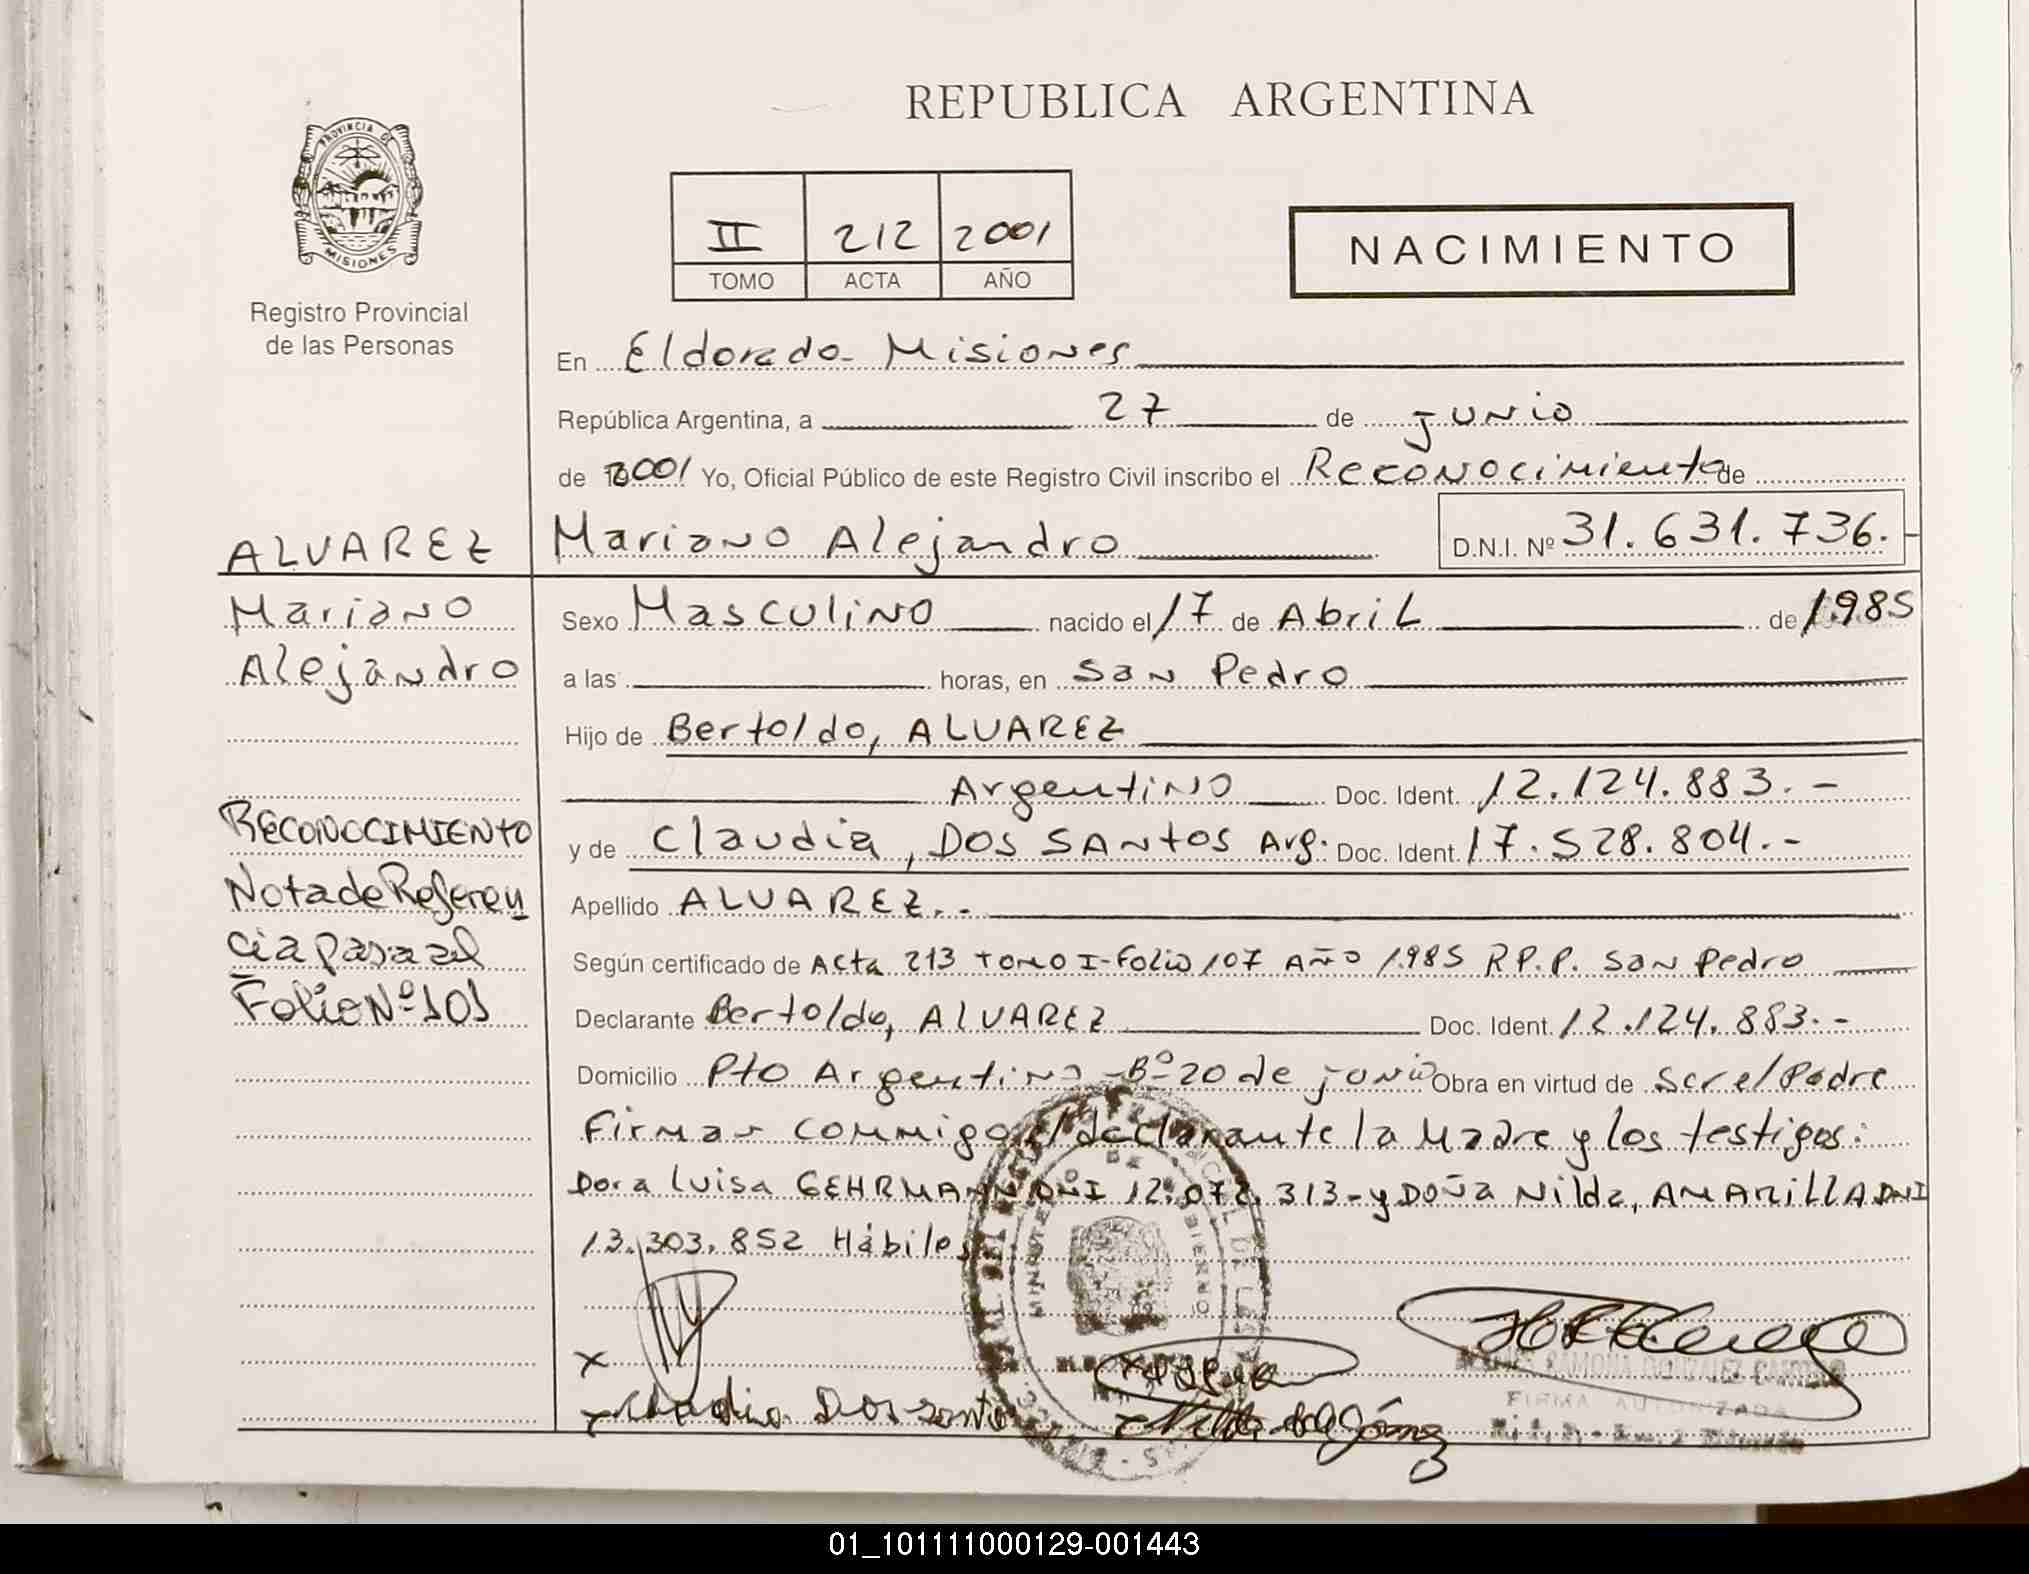 REPUBLICA ARGENTINA
PROVINCIA DE
MISIONES
Registro Provincial
de las Personas
II 212 2001
TOMO ACTA AÑO
NACIMIENTO
En Eldorado - Misiones
República Argentina, a 27 de junio
de 2001 Yo, Oficial Público de este Registro Civil inscribo el Reconocimiento de
Mariano Alejandro D.N.I. Nº 31.631.736.-
Sexo Masculino nacido el 17 de Abril de 1985
a las horas, en San Pedro
Hijo de Bertoldo, ALVAREZ
Argentino Doc. Ident. 12.124.883.-
y de Claudia, DOS SANTOS Arg. Doc. Ident. 17.528.804.-
Apellido ALVAREZ.-
Según certificado de Acta 213 tomo I-Folio 107 Año 1985 R.P.P. San Pedro
Declarante Bertoldo, ALVAREZ Doc. Ident. 12.124.883.-
Domicilio Pto Argentino - Bº 20 de junio Obra en virtud de Ser el Padre
Firman conmigo el declarante la Madre y los testigos:
Dora Luisa GEHRMANN DNI 12.072.313- y Doña Nilda, AMARILLA DNI
13.303.852 Hábiles
ALVAREZ
Mariano
Alejandro
RECONOCIMIENTO
Nota de Referen
cia pasa al
Folio Nº 101
x
x Claudia Dos santos
RAMONA GONZALEZ
FIRMA AUTORIZADA
01_101111000129-001443